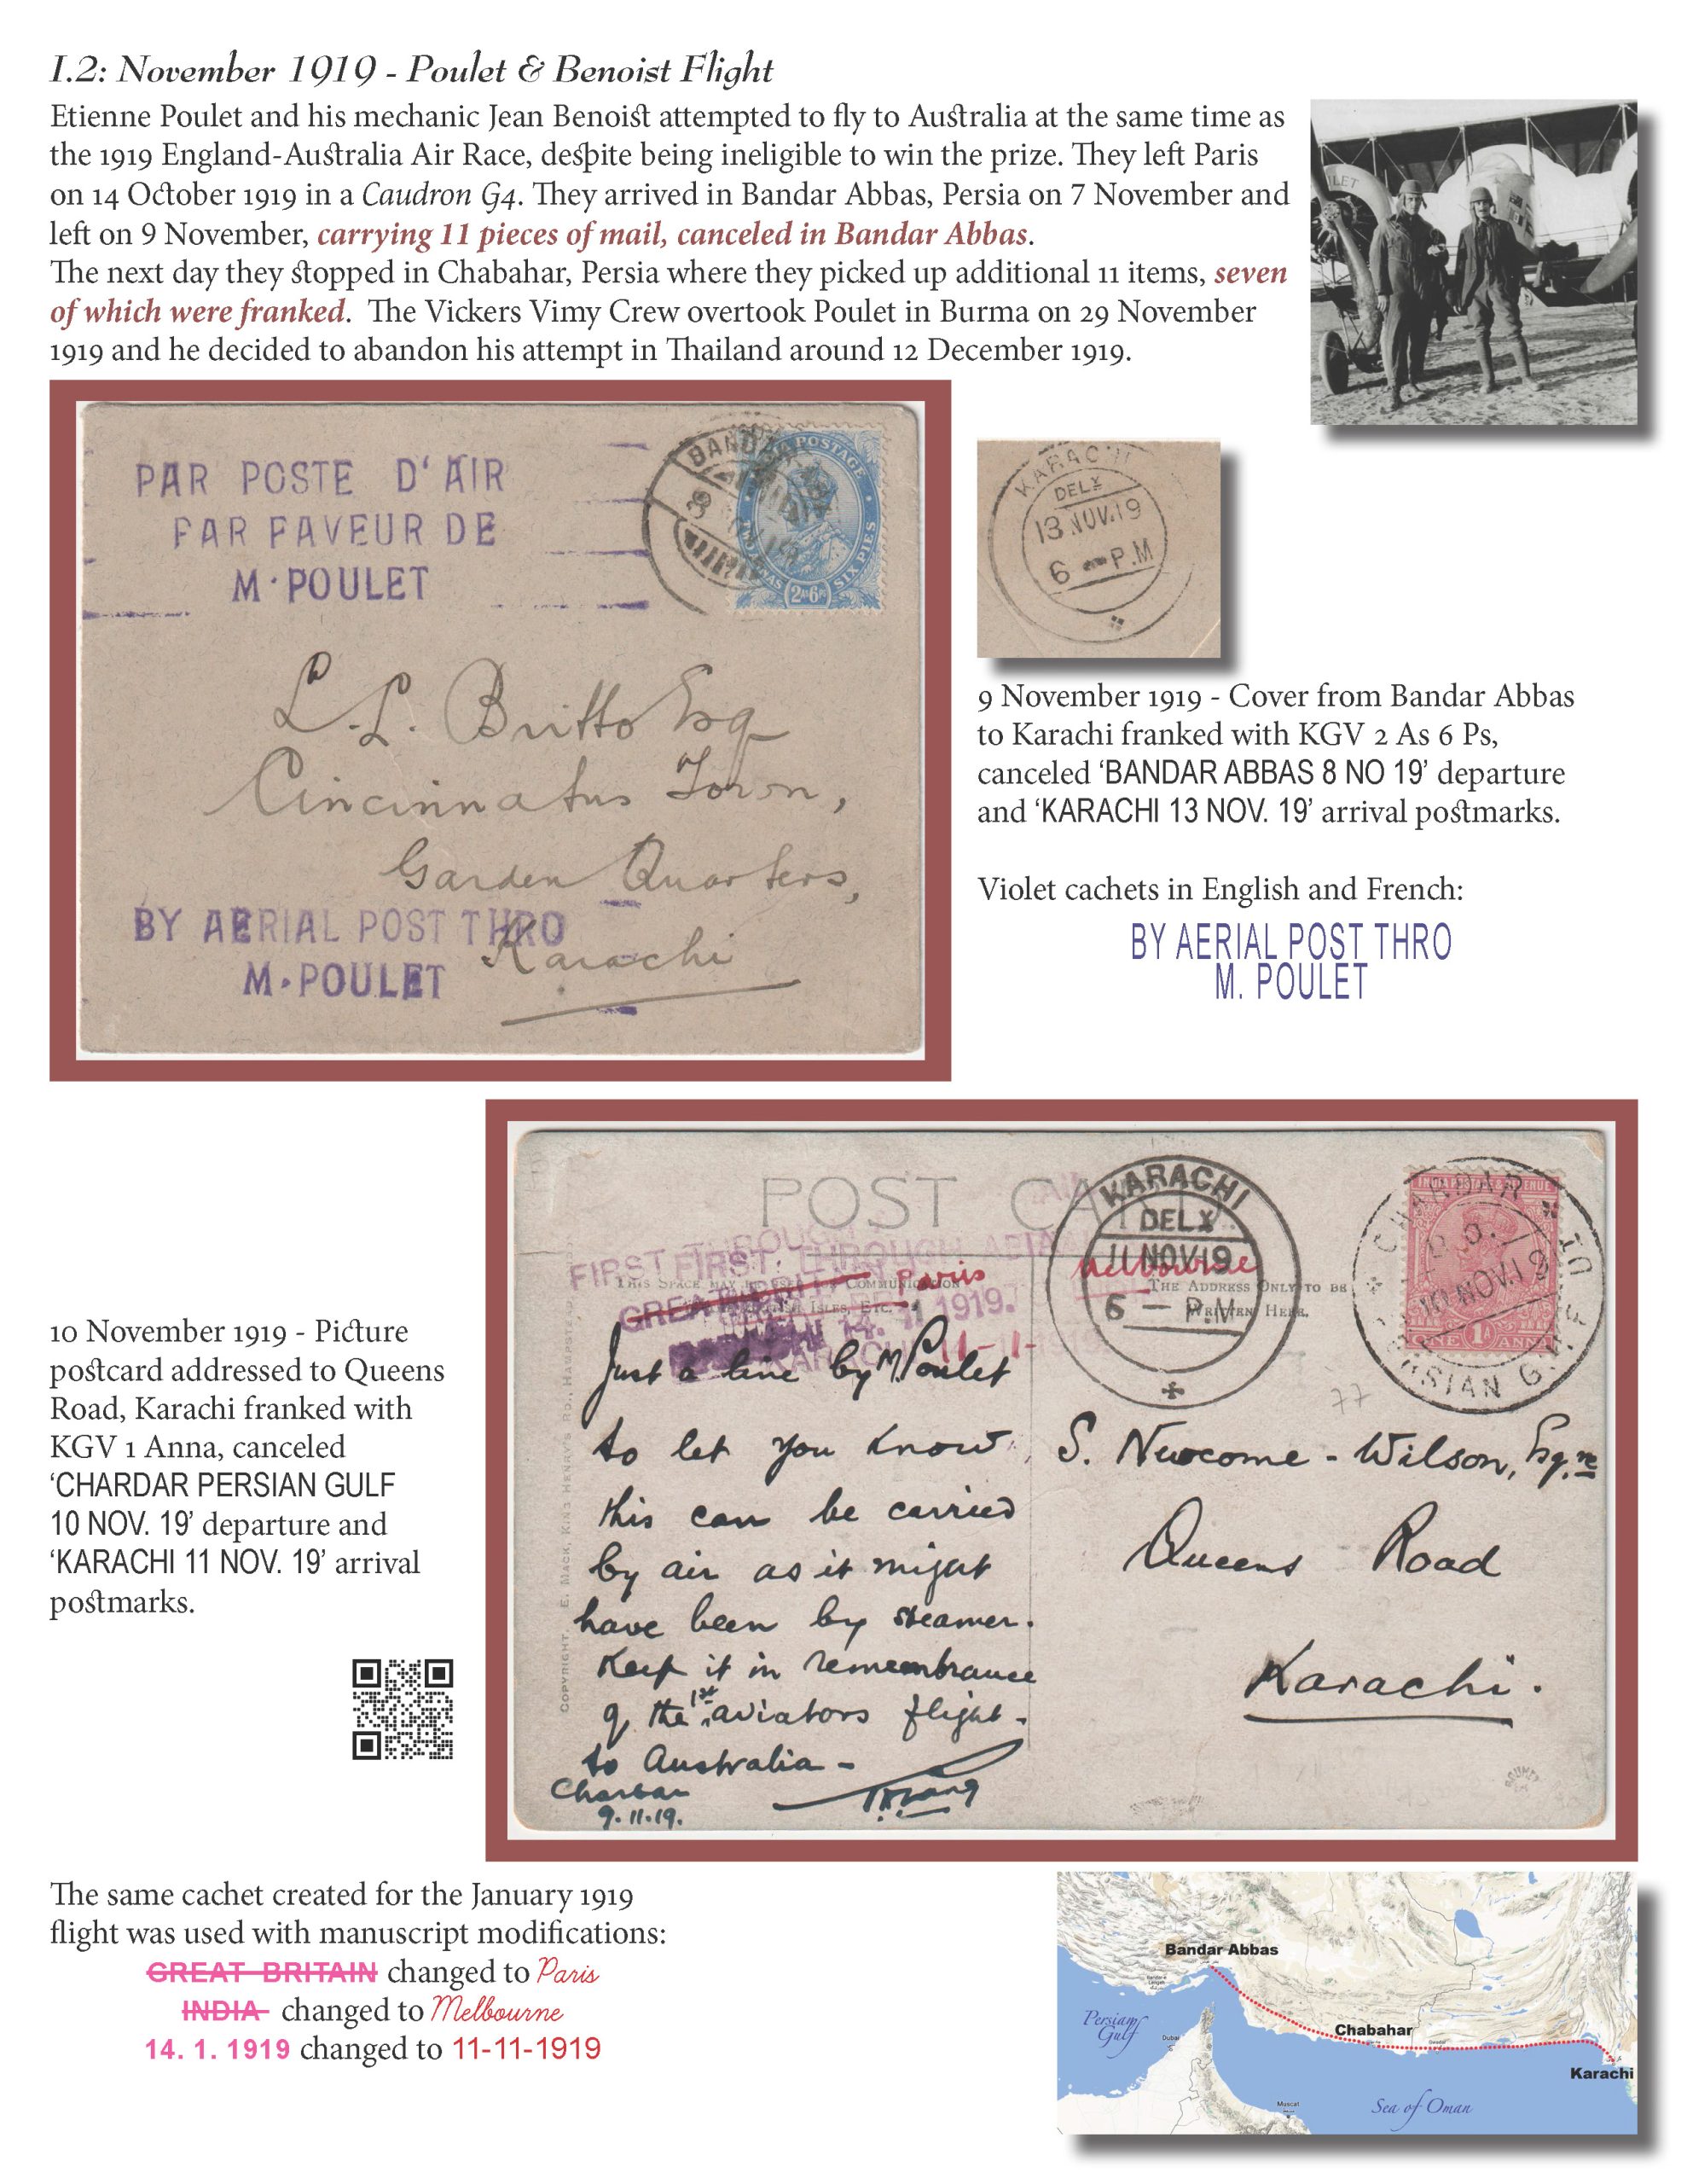 I.2: November 1919 - Poulet & Benoist Flight
Etienne Poulet and his mechanic Jean Benoist attempted to fly to Australia at the same time as
the 1919 England-Australia Air Race, despite being ineligible to win the prize. They left Paris
on 14 October 1919 in a Caudron G4. They arrived in Bandar Abbas, Persia on 7 November and
left on 9 November, carrying 11 pieces of mail, canceled in Bandar Abbas.
The next day they stopped in Chabahar, Persia where they picked up additional 11 items, seven
of which were franked. The Vickers Vimy Crew overtook Poulet in Burma on 29 November
1919 and he decided to abandon his attempt in Thailand around 12 December 1919.
PAR POSTE D'AIR
PAR FAVEUR DE
M·POULET
POSTAGE
SIX PIES
2As6Ps
L.L. Britto Esq
Cincinnatus Town,
Garden Quarters,
Karachi
BY AERIAL POST THRO
M·POULET
KARACHI
DELY
13 NOV.19
6 - P.M
9 November 1919 - Cover from Bandar Abbas
to Karachi franked with KGV 2 As 6 Ps,
canceled ‘BANDAR ABBAS 8 NO 19’ departure
and ‘KARACHI 13 NOV. 19’ arrival postmarks.
Violet cachets in English and French:
BY AERIAL POST THRO
M. POULET
POST CA
KARACHI
DELY
11 NOV.19
6 - P.M.
INDIA POSTAGE & REVENUE
ONE 1A ANNA
10 NOV.19
PERSIAN GULF
FIRST FIRST THROUGH
Paris
Melbourne
GREAT
14. 1 1919.
KARACHI
11-11-
THIS SPACE MAY BE USED FOR COMMUNICATION
ISLES, ETC.
THE ADDRESS ONLY TO BE
WRITTEN HERE.
Just a line by M. Poulet
to let you know
this can be carried
by air as it might
have been by steamer.
Keep it in remembrance
of the 1st aviators flight
to Australia -
Charbar
9.11.19.
77
S. Newcome - Wilson, Esqre
Queens Road
Karachi.
COPYRIGHT. E. MACK, KING HENRY'S RD., HAMPSTEAD
10 November 1919 - Picture
postcard addressed to Queens
Road, Karachi franked with
KGV 1 Anna, canceled
‘CHARDAR PERSIAN GULF
10 NOV. 19’ departure and
‘KARACHI 11 NOV. 19’ arrival
postmarks.
The same cachet created for the January 1919
flight was used with manuscript modifications:
GREAT BRITAIN changed to Paris
INDIA changed to Melbourne
14. 1. 1919 changed to 11-11-1919
Bandar Abbas
Persian
Gulf
Dubai
Chabahar
Karachi
Muscat
Sea of Oman